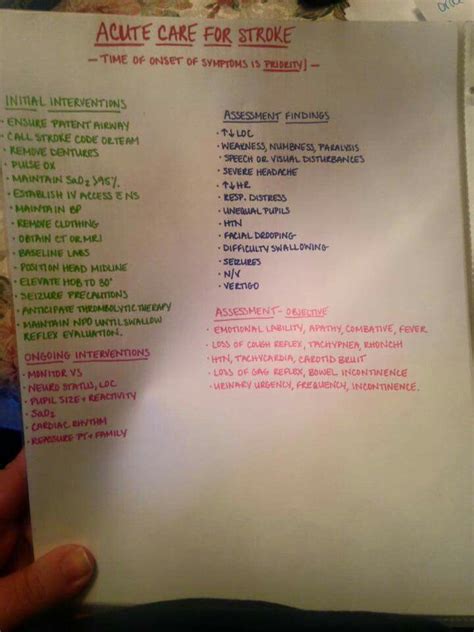 ACUTE CARE FOR STROKE
— TIME OF ONSET OF SYMPTOMS IS PRIORITY! —
INITIAL INTERVENTIONS
· ENSURE PATENT AIRWAY
· CALL STROKE CODE OR TEAM
· REMOVE DENTURES
· PULSE OX
· MAINTAIN SaO2 >95%
· ESTABLISH IV ACCESS c̄ NS
· MAINTAIN BP
· REMOVE CLOTHING
· OBTAIN CT OR MRI
· BASELINE LABS
· POSITION HEAD MIDLINE
· ELEVATE HOB TO 30°
· SEIZURE PRECAUTIONS
· ANTICIPATE THROMBOLYTIC THERAPY
· MAINTAIN NPO UNTIL SWALLOW
REFLEX EVALUATION.
ONGOING INTERVENTIONS
· MONITOR VS
· NEURO STATUS, LOC
· PUPIL SIZE + REACTIVITY
· SaO2
· CARDIAC RHYTHM
· REASSURE PT + FAMILY
ASSESSMENT FINDINGS
· ↑↓ LOC
· WEAKNESS, NUMBNESS, PARALYSIS
· SPEECH OR VISUAL DISTURBANCES
· SEVERE HEADACHE
· ↑↓ HR
· RESP. DISTRESS
· UNEQUAL PUPILS
· HTN
· FACIAL DROOPING
· DIFFICULTY SWALLOWING
· SEIZURES
· N/V
· VERTIGO
ASSESSMENT - OBJECTIVE
· EMOTIONAL LABILITY, APATHY, COMBATIVE, FEVER
· LOSS OF COUGH REFLEX, TACHYPNEA, RHONCHI
· HTN, TACHYCARDIA, CAROTID BRUIT
· LOSS OF GAG REFLEX, BOWEL INCONTINENCE
· URINARY URGENCY, FREQUENCY, INCONTINENCE.